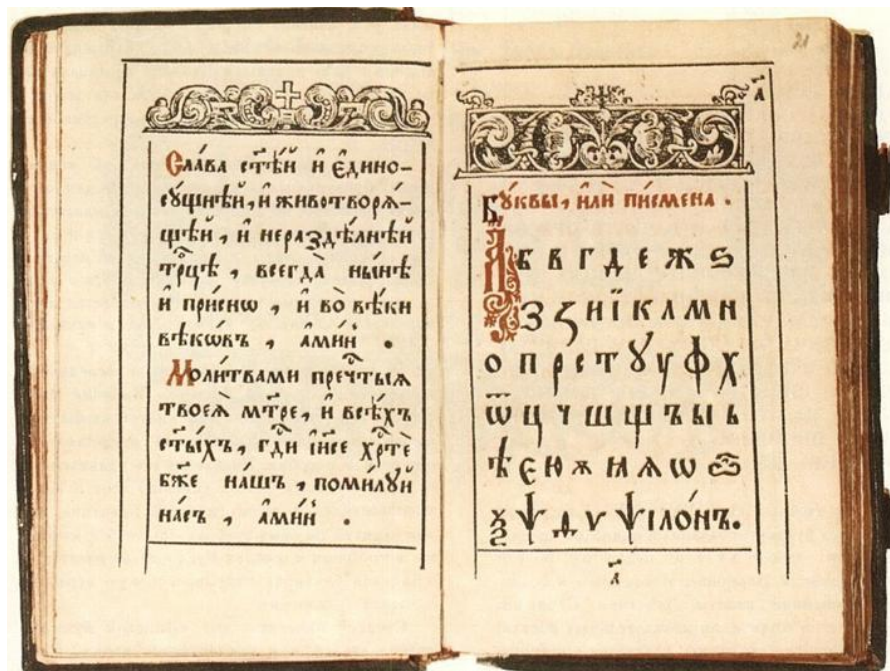 Сла́ва ст҃ѣ́й и҆ є҆дино-
сꙋ́щнѣй, и҆ животворѧ́-
щѣй, и҆ нераздѣ́лнѣй
трⷪ҇цѣ, всегда̀ ны́нѣ
и҆ при́снѡ, и҆ во̀ вѣ́ки
вѣкѡ́въ, а҆ми́нь.
Моли́твами пречⷭ҇тыѧ
твоеѧ̀ мт҃ре, и҆ всѣ́хъ
ст҃ы́хъ, гдⷭ҇и і҆и҃се хрⷭ҇тѐ
бж҃е на́шъ, поми́лꙋй
на́съ, а҆ми́нь.
21
а҃
Бꙋ́квы, и҆лѝ пи́смена.
А Б В Г Д Е Ж Ѕ
З Ꙁ И Ї К Л М Н
О П Р С Т Ꙋ У Ф Х
Ѿ Ц Ч Ш Щ Ъ Ы Ь
Ѣ Є Ю Ѫ Ꙗ Ѧ Ѡ
Ѯ Ѱ Ѳ Ѵ ѱїло́нъ.
а҃